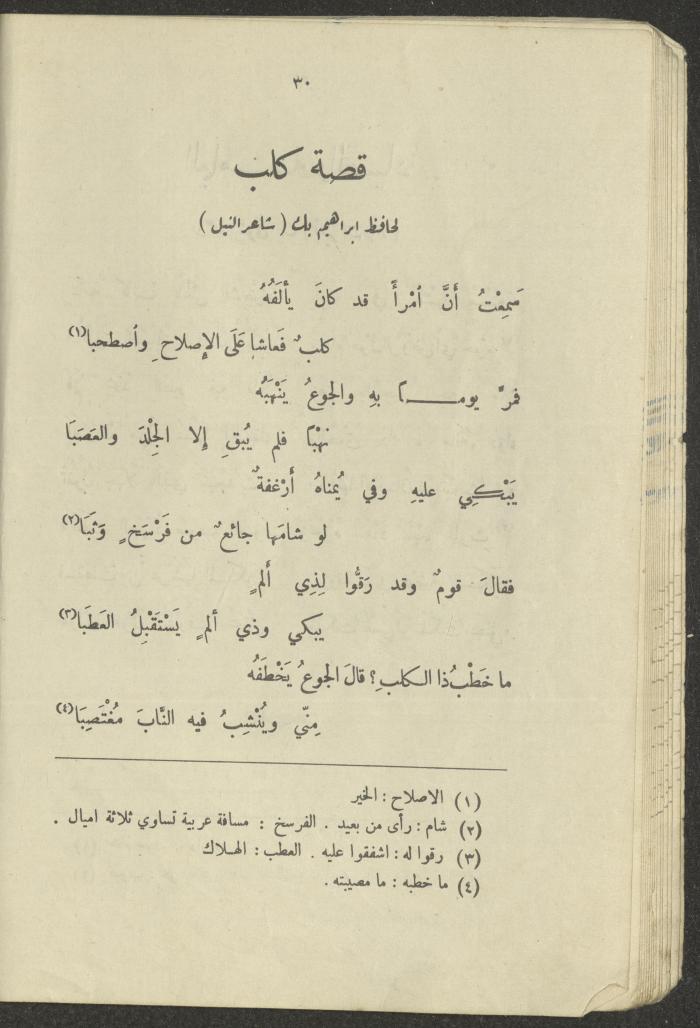 ٣٠
قصة كلب
لحافظ ابراهيم بك ( شاعر النيل )
سَمِعْتُ أَنَّ ٱمْرأً قد كانَ يأْلَفُهُ
كلبٌ فَعاشا عَلَى الإِصلاحِ وٱصطحبا(١)
فمرَّ يومـــاً بهِ والجوعُ يَنْهَبُه
نهْبًا فلم يُبقِ إِلا الجِلْدَ والعَصَبَا
يَبْكِي عليهِ وفي يُمناهُ أَرْغفةٌ
لو شامَها جائعٌ من فَرْسَخٍ وَثَبَا(٢)
فقالَ قومٌ وقد رَقُّوا لِذِي أَلمٍ
يبكي وذي ألمٍ يَسْتَقْبِلُ العَطَبا(٣)
ما خَطْبُ ذا الكلبِ؟ قالَ الجوعُ يَخْطَفُه
مِنّي ويُنْشِبُ فيه النَّابَ مُغْتَصِبَا(٤)
(١) الاصلاح : الخير
(٢) شام : رأى من بعيد . الفرسخ : مسافة عربية تساوي ثلاثة اميال .
(٣) رقوا له : اشفقوا عليه . العطب : الهلاك
(٤) ما خطبه : ما مصيبته .